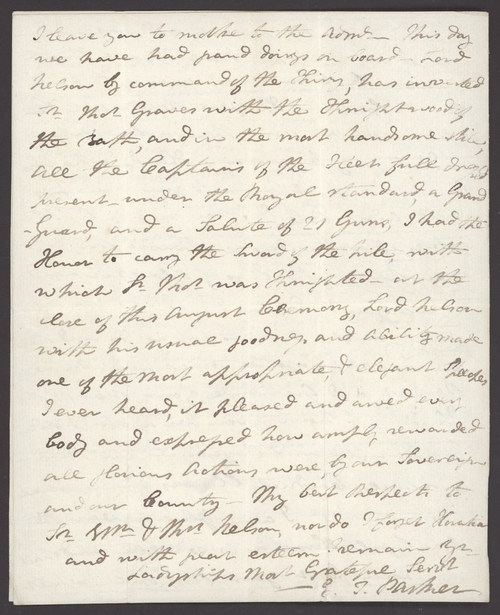 I leave you to make to the Adml— This day
we have had grand doings on board— Lord
Nelson by command of the King, has invested
Sr Thos Graves with the Knighthood of
the Bath, and in the most handsome
all the Captains of the Fleet full dressed
present— under the Royal standard, a Grand
-Guard, and a Salute of 21 Guns, I had the
Honor to carry the Sword of the Nile, with
which Sr Thos was Knighted— at the
close of this August Ceremony, Lord Nelson
with his usual goodness and Ability made
one of the most appropriate, & elegant Speeches
I ever heard, it pleased and awed every
body and expressed how amply rewarded
all glorious Actions were, by our Sovereign
and our Country— My best respects to
Sr Wm & Mrs Nelson, nor do I forget Horatia
and with great esteem remain Yr
Ladyships Most Grateful Servt
E. T. Parker